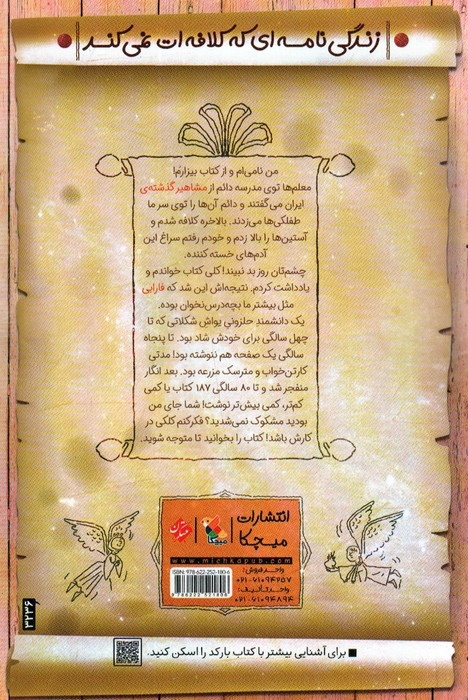 زندگی‌نامه‌ای که کلافه‌ات نمی‌کند
من نامی‌ام و از کتاب بیزارم!
معلم‌ها توی مدرسه دائم از مشاهیر گذشته‌ی
ایران می‌گفتند و دائم آن‌ها را توی سر ما
طفلکی‌ها می‌زدند. بالاخره کلافه شدم و
آستین‌ها را بالا زدم و خودم رفتم سراغ این
آدم‌های خسته کننده.
چشم‌تان روز بد نبیند! کلی کتاب خواندم و
یادداشت کردم. نتیجه‌اش این شد که فارابی
مثل بیشتر ما بچه‌درس‌نخوان بوده.
یک دانشمندِ حلزونیِ یواشِ شکلاتی که تا
چهل سالگی برای خودش شاد بود. تا پنجاه
سالگی یک صفحه هم ننوشته بود! مدتی
کارتن‌خواب و مترسک مزرعه بود. بعد انگار
منفجر شد و تا ۸۰ سالگی ۱۸۷ کتاب یا کمی
کم‌تر، کمی بیش‌تر نوشت! شما جای من
بودید مشکوک نمی‌شدید؟ فکرکنم کلکی در
کارش باشد! کتاب را بخوانید تا متوجه شوید.
انتشارات
میچکا
میچکا
مبتکران
www.michkapub.com
ISBN: 978-622-252-180-6
9 786222 521806
واحد فروش:
۰۲۱-۶۱۰۹۴۲۵۷
واحد تألیف:
۰۲۱-۶۱۰۹۴۸۹۴
۳۲۳۶
برای آشنایی بیشتر با کتاب بارکد را اسکن کنید.